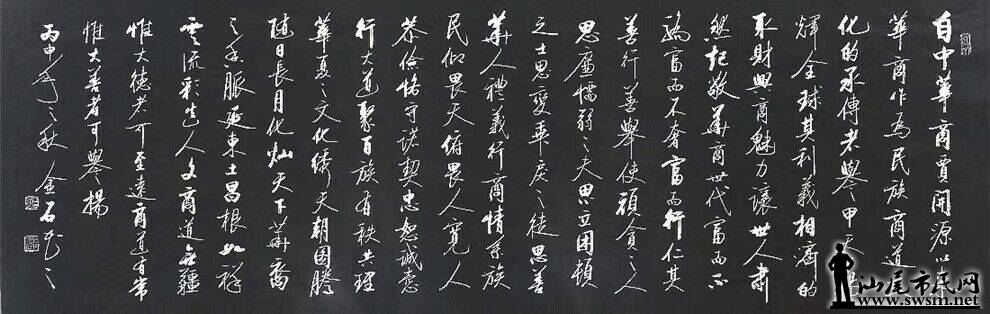 自中華商賈開源以來
華商作為民族商道
化的承傳者譽甲天
輝全球其利義相濟的
取財興商魅力讓世人肅
然起敬華商世代富而不
驕富而不奢富而行仁其
善行善舉使頑貪之人
思廉懦弱之夫思立困頓
之士思變乖戾之徒思善
華人禮義行商情系族
民仰畏天俯畏人寬人
恭儉恪守諾契忠恕誠意
行大道聚百族有秩共理
華夏之文化綉天朝國騰
隨日長月化燦天下華裔
之香脈延東土昌根如祥
雲流彩生人文商道無疆
惟大德者可至遠商道有常
惟大善者可舉揚
丙申年之秋 金石
汕尾市民网
www.swsm.net